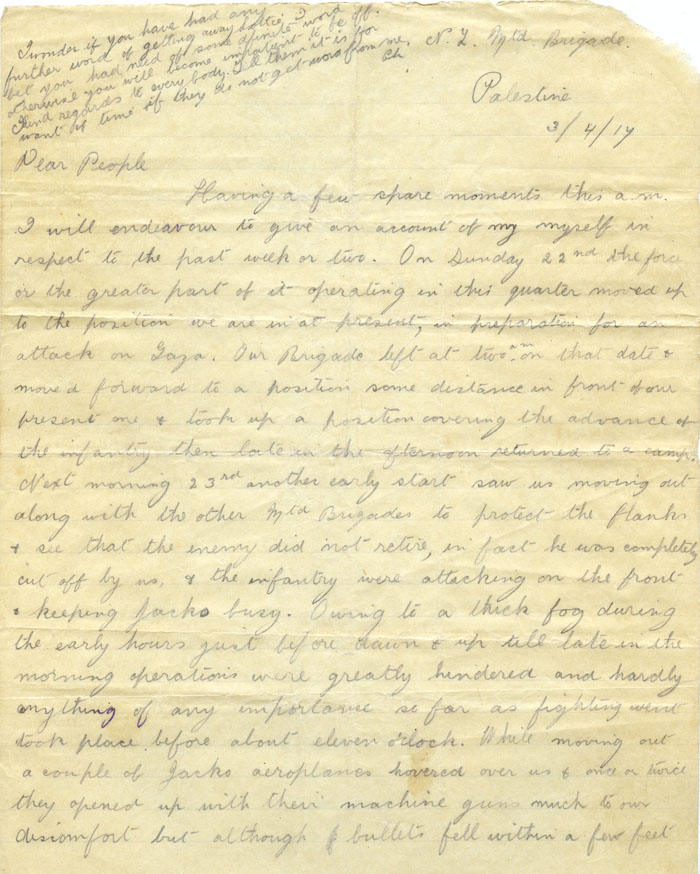 I wonder if you have had any
further word of getting away Hattie. I
bet you had need of some definite word
otherwise you will become impatient to be off.
Kind regards to every body. Tell them it is for
want of time if they do not get word from me.
N. Z. Mtd. Brigade.
Palestine
3/4/17
Dear People
Having a few spare moments this a.m.
I will endeavour to give an account of my myself in
respect to the past week or two. On Sunday 22nd the force
or the greater part of it operating in this quarter moved up
to the position we are in at present, in preparation for an
attack on Gaza. Our Brigade left at two a.m. on that date &
moved forward to a position some distance in front of our
present one & took up a position covering the advance of
the infantry then late in the afternoon returned to a camp.
Next morning 23rd another early start saw us moving out
along with the other Mtd Brigades to protect the flanks
& see that the enemy did not retire, in fact he was completely
cut off by us, & the infantry were attacking on the front
& keeping Jacko busy. Owing to a thick fog during
the early hours just before dawn & up till late in the
morning operations were greatly hindered and hardly
anything of any importance so far as fighting went
took place before about eleven o'clock. While moving out
a couple of Jacko aeroplanes hovered over us & once or twice
they opened up with their machine guns much to our
discomfort but although bullets fell within a few feet